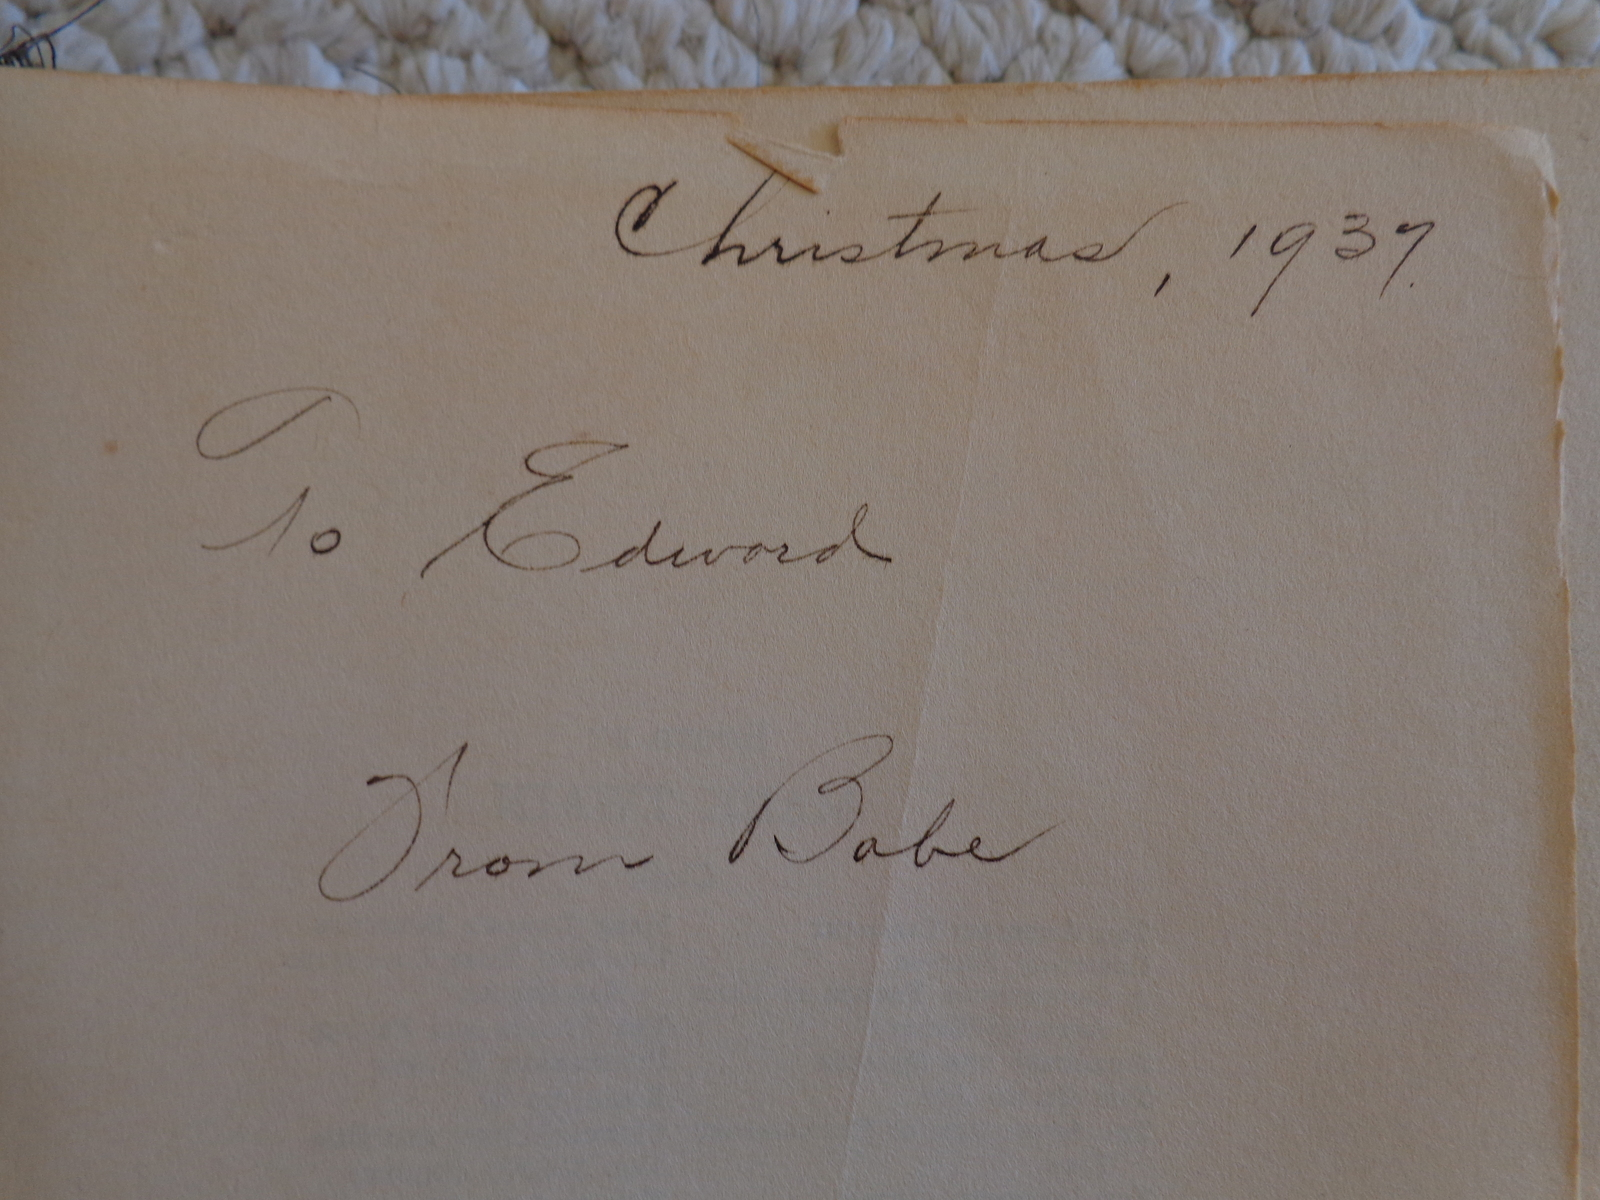 Christmas, 1937.
To Edward
From Babe